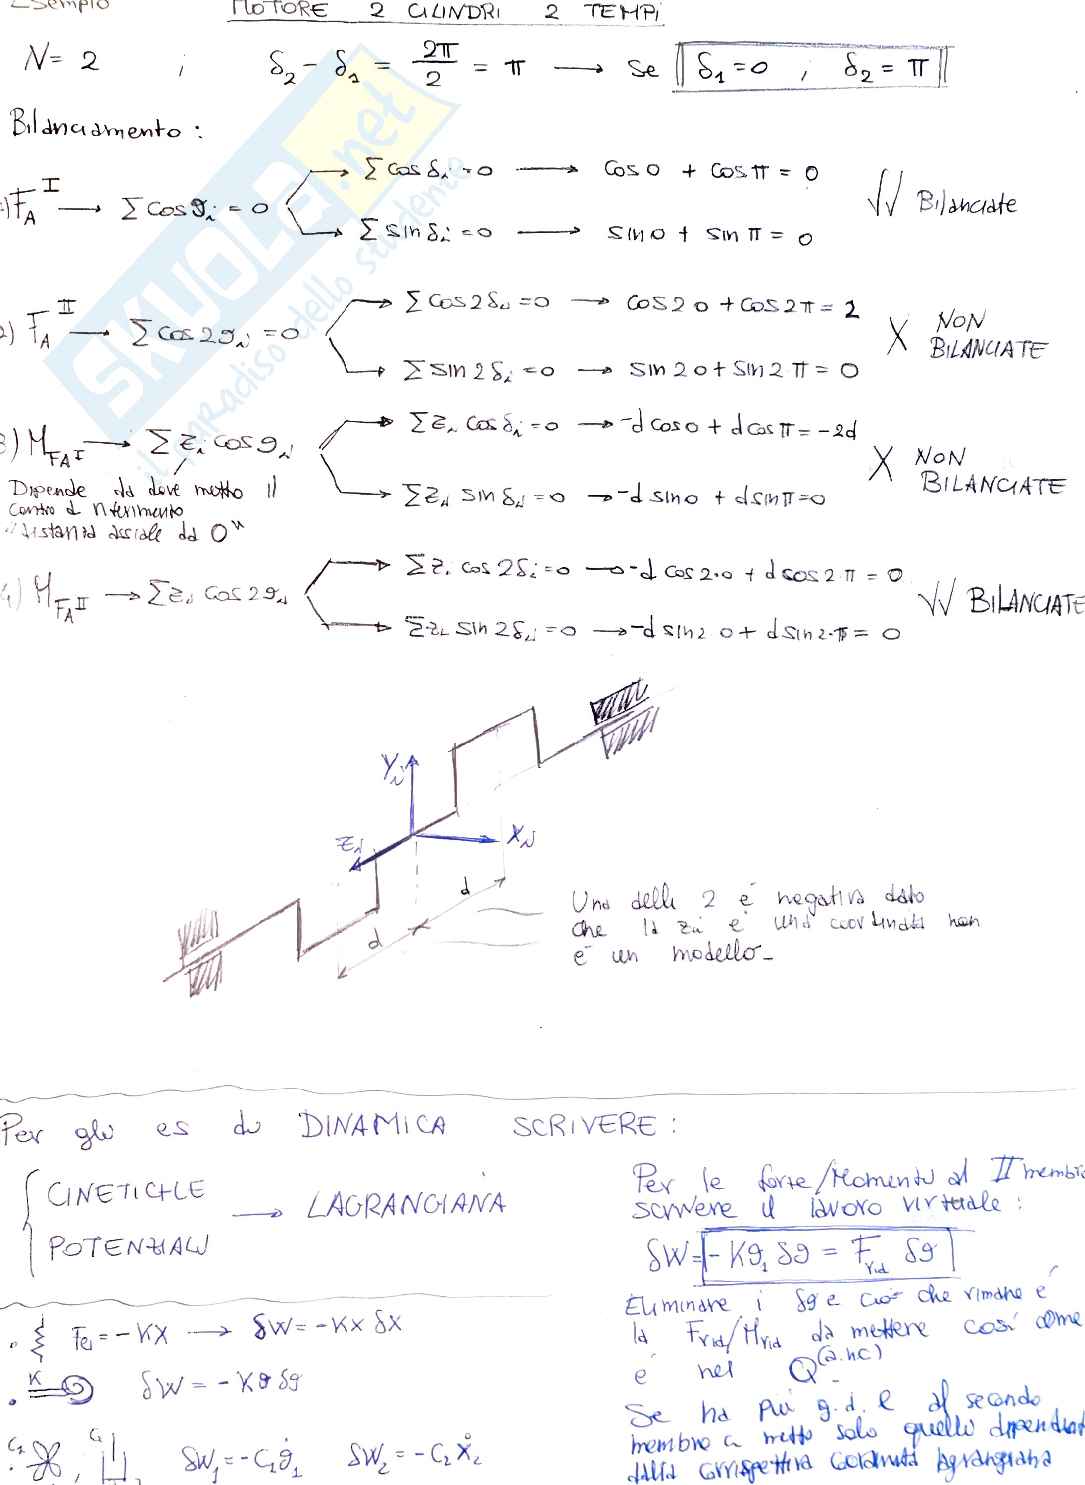 Esempio MOTORE 2 CILINDRI 2 TEMPI
N = 2 ; δ₂ - δ₁ = 2π/2 = π → Se δ₁=0 , δ₂ = π
Bilanciamento :
1) F_A^I → Σ cos ϑᵢ = 0
Σ cos δᵢ = 0 → cos 0 + cos π = 0
Σ sin δᵢ = 0 → sin 0 + sin π = 0
√√ Bilanciate
2) F_A^II → Σ cos 2ϑᵢ = 0
Σ cos 2δᵢ = 0 → cos 2 0 + cos 2π = 2
Σ sin 2δᵢ = 0 → sin 2 0 + sin 2 π = 0
X NON BILANCIATE
3) M_{FA^I} → Σ zᵢ cos ϑᵢ
Σ zᵢ cos δᵢ = 0 → -d cos 0 + d cos π = -2d
Σ zᵢ sin δᵢ = 0 → -d sin 0 + d sin π = 0
X NON BILANCIATE
Dipende da dove metto il
centro di riferimento
"distanza assiale da O"
4) M_{FA^II} → Σ zᵢ cos 2ϑᵢ
Σ zᵢ cos 2δᵢ = 0 → -d cos 2·0 + d cos 2·π = 0
Σ zᵢ sin 2δᵢ = 0 → -d sin 2 0 + d sin 2·π = 0
√√ BILANCIATE
SKUOLA.net
il paradiso dello studente
Yᵢ
Xᵢ
Zᵢ
d
d
Una delle 2 è negativa dato
che la zᵢ è una coordinata non
è un modello-
Per gli es di DINAMICA SCRIVERE :
CINETICHE
POTENZIALI
→ LAGRANGIANA
Per le forze/Momenti al II membro
scrivere il lavoro virtuale :
δW = -Kϑ₁ δϑ = F_rid δϑ
Eliminare i δϑ e ciò che rimane è
la F_rid/M_rid da mettere così come
è nel Q^(a.nc)
Se ha più g.d.l al secondo
membro ci metto solo quello dipendente
dalla corrispettiva coordinata lagrangiana
• Fel = -Kx → δW = -Kx δx
• K δW = -Kϑ δϑ
C₁ , C₂ δW₁ = -C₁ϑ̇₁ δW₂ = -C₂ẋ₂